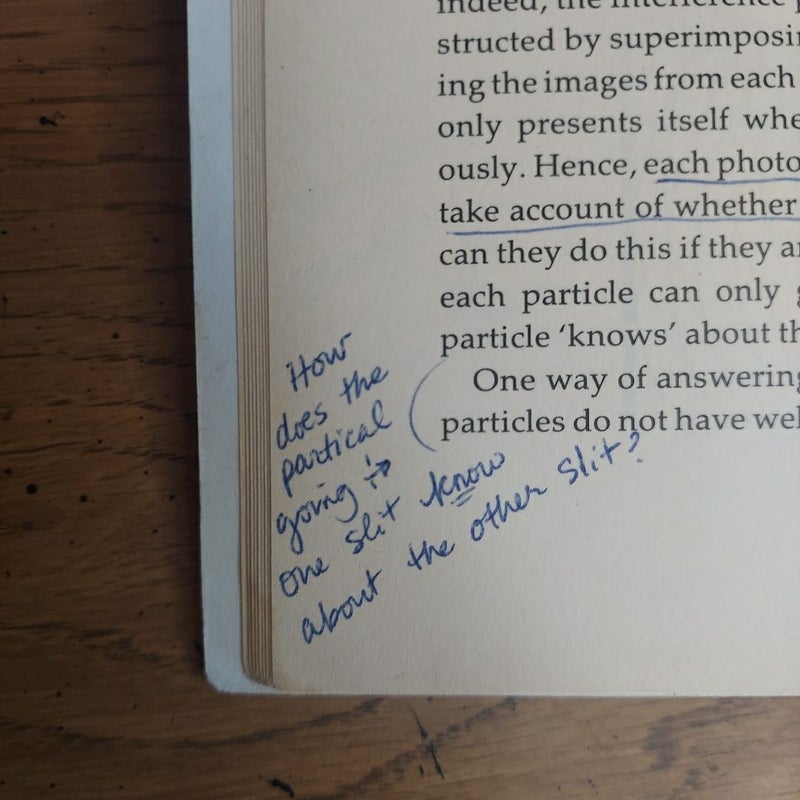 indeed, the interference
structed by superimposi
ing the images from each
only presents itself whe
ously. Hence, each photo
take account of whether
can they do this if they a
each particle can only
particle 'knows' about th
One way of answering
particles do not have wel
How
does the
partical
going in
one slit know
about the other slit?